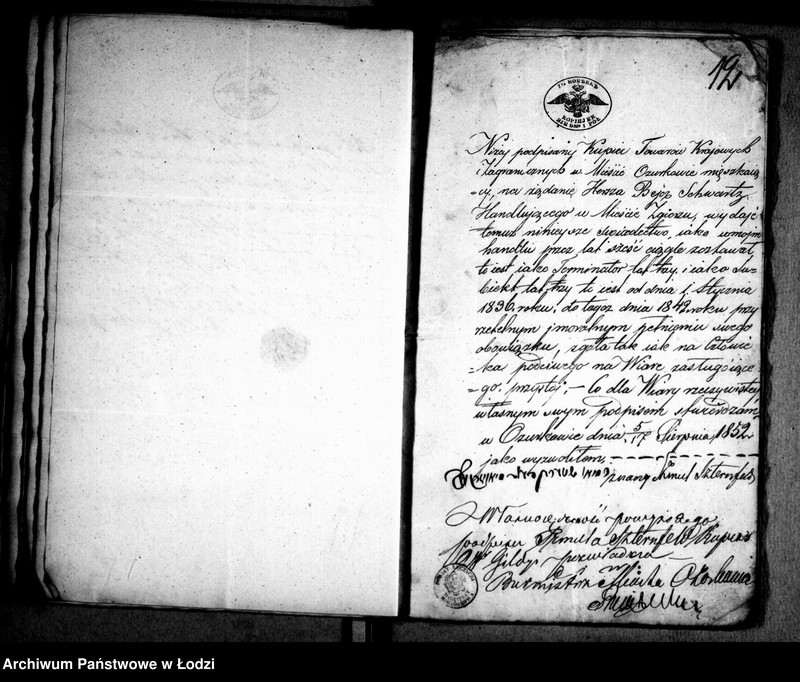 12
7½ KOPIEJEK
Niżéj podpisany Kupiec Towarów Krajowych
i Zagranicznych w Mieście Ozorkowie mięszkaią-
=cy, na rządanie Hersza Bejr Schwartz
Handlującego w Mieście Zgierzu, wydaję
temuż ninieysze swiadectwo, iako w moym
handlu przez lat szesć ciągle zostawał,
to iest iako Terminator lat trzy, i iako Su-
biekt lat trzy to iest od dnia 1 Stycznia
1836. roku, do tegoż dnia 1842. roku przy
rzetelnym i moralnym pełnieniu swego
obowiązku, zgoła tak iak na Człowie
=ka poćciwego na Wiarę zasługuiące-
=go, przystoi, – Co dla Wiary rzeczywistej
własnym swym podpisem stwierdzam
w Ozorkowie dnia 5/17 Sierpnia 1852
jako wyzwoliłem.
Szmul Szternfeld
Własnoręczność powyższego
podpisu Szmula Szternfeld Kupca
Gildyi poswiadcza
Burmistrz Miasta Ozorkowa
Archiwum Państwowe w Łodzi